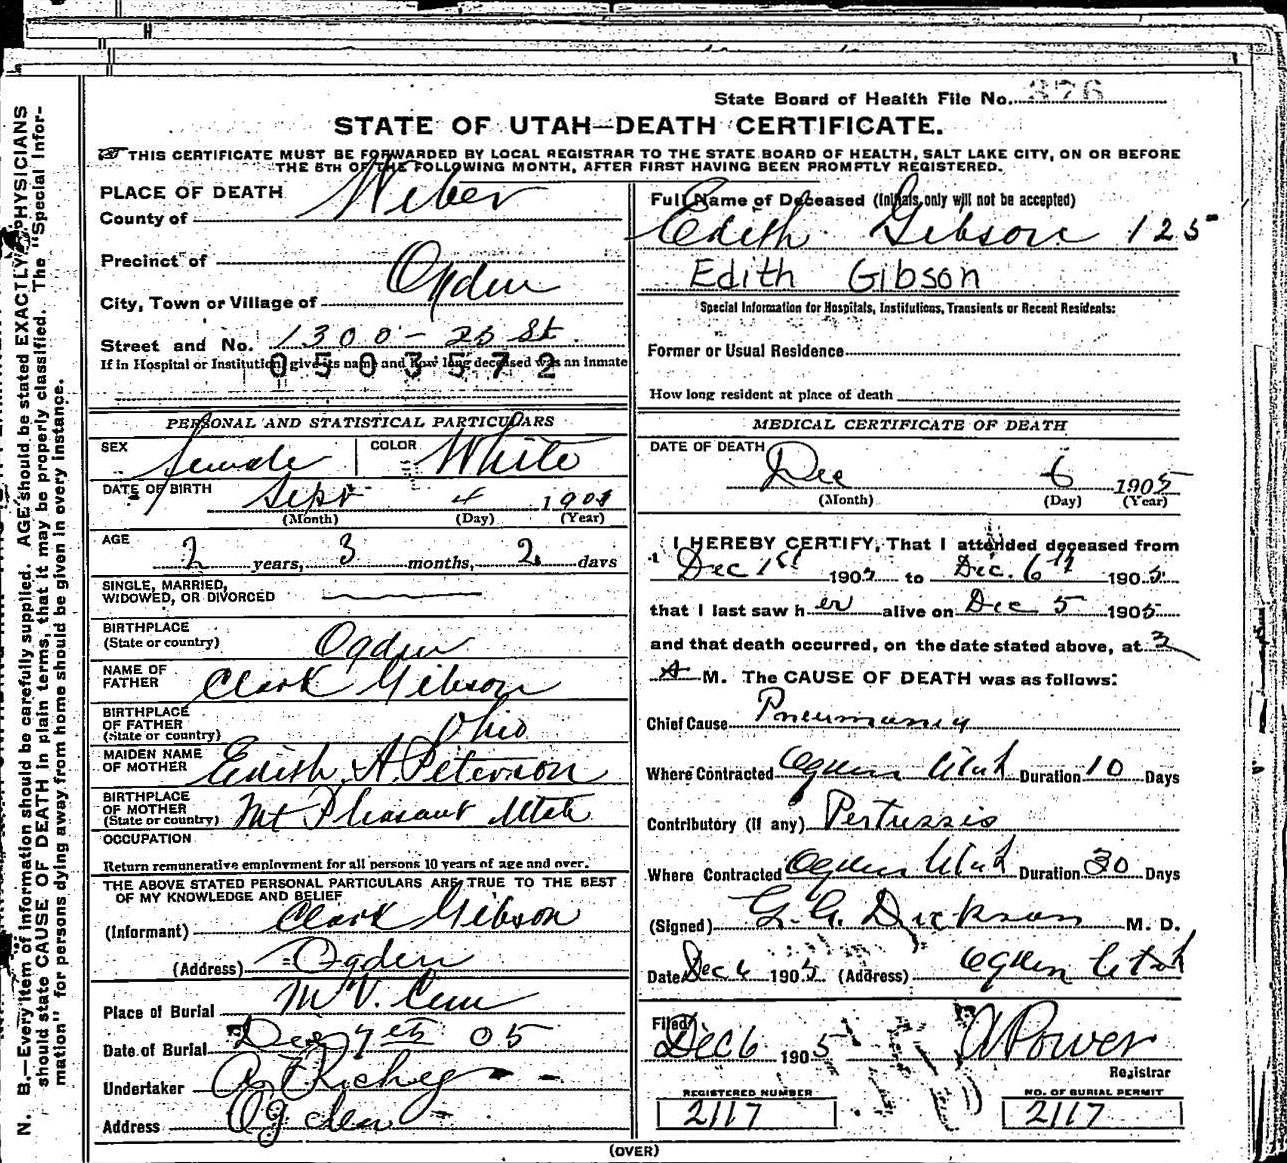 State Board of Health File No. 376
STATE OF UTAH—DEATH CERTIFICATE.
THIS CERTIFICATE MUST BE FORWARDED BY LOCAL REGISTRAR TO THE STATE BOARD OF HEALTH, SALT LAKE CITY, ON OR BEFORE
THE 5TH OF THE FOLLOWING MONTH, AFTER FIRST HAVING BEEN PROMPTLY REGISTERED.
PLACE OF DEATH
County of Weber
Precinct of
City, Town or Village of Ogden
Street and No. 1300 - 25 St.
If in Hospital or Institution, give its name and how long deceased was an inmate
0503572
PERSONAL AND STATISTICAL PARTICULARS
SEX Female COLOR White
DATE OF BIRTH Sept 4 190
(Month) (Day) (Year)
AGE 2 years, 3 months, 2 days
SINGLE, MARRIED,
WIDOWED, OR DIVORCED
BIRTHPLACE
(State or country) Ogden
NAME OF
FATHER Clark Gibson
BIRTHPLACE
OF FATHER
(State or country) Ohio
MAIDEN NAME
OF MOTHER Edith A. Peterson
BIRTHPLACE
OF MOTHER
(State or country) Mt Pleasant Utah
OCCUPATION
Return remunerative employment for all persons 10 years of age and over.
THE ABOVE STATED PERSONAL PARTICULARS ARE TRUE TO THE BEST
OF MY KNOWLEDGE AND BELIEF
(Informant) Clark Gibson
(Address) Ogden
Place of Burial Mt V. Cem
Date of Burial Dec 7th 05
Undertaker Richey
Address Ogden
Full Name of Deceased (Initials only will not be accepted)
Edith Gibson 125
Edith Gibson
Special Information for Hospitals, Institutions, Transients or Recent Residents:
Former or Usual Residence
How long resident at place of death
MEDICAL CERTIFICATE OF DEATH
DATE OF DEATH Dec 6 1905
(Month) (Day) (Year)
I HEREBY CERTIFY, That I attended deceased from
Dec 1st 1905 to Dec. 6th 1905
that I last saw h er alive on Dec 5 1905
and that death occurred, on the date stated above, at 3
A M. The CAUSE OF DEATH was as follows:
Chief Cause Pneumonia
Where Contracted Ogden Utah Duration 10 Days
Contributory (if any) Pertussis
Where Contracted Ogden Utah Duration 30 Days
(Signed) Dickson M. D.
Date Dec 6 1905 (Address) Ogden Utah
Filed
Dec 6 1905 A Power
Registrar
REGISTERED NUMBER NO. OF BURIAL PERMIT
2117 2117
(OVER)
N. B.—Every item of information should be carefully supplied. AGE should be stated EXACTLY. PHYSICIANS
should state CAUSE OF DEATH in plain terms, that it may be properly classified. The "Special Infor-
mation" for persons dying away from home should be given in every instance.